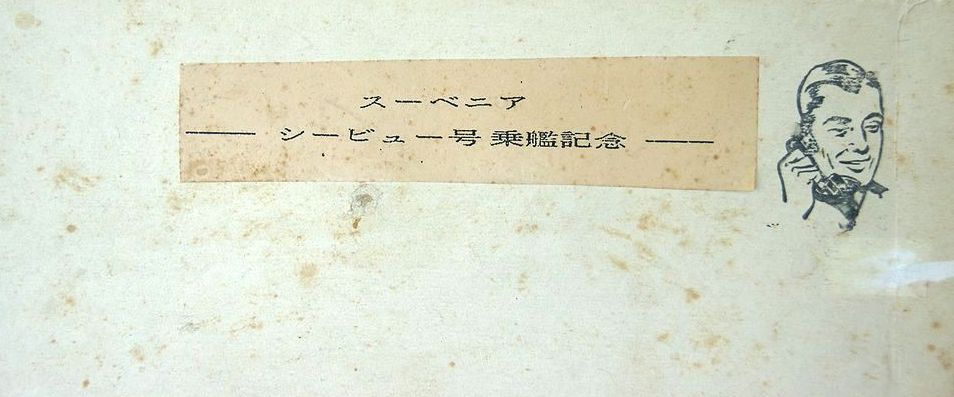 スーベニア
── シービュー号乗艦記念 ──